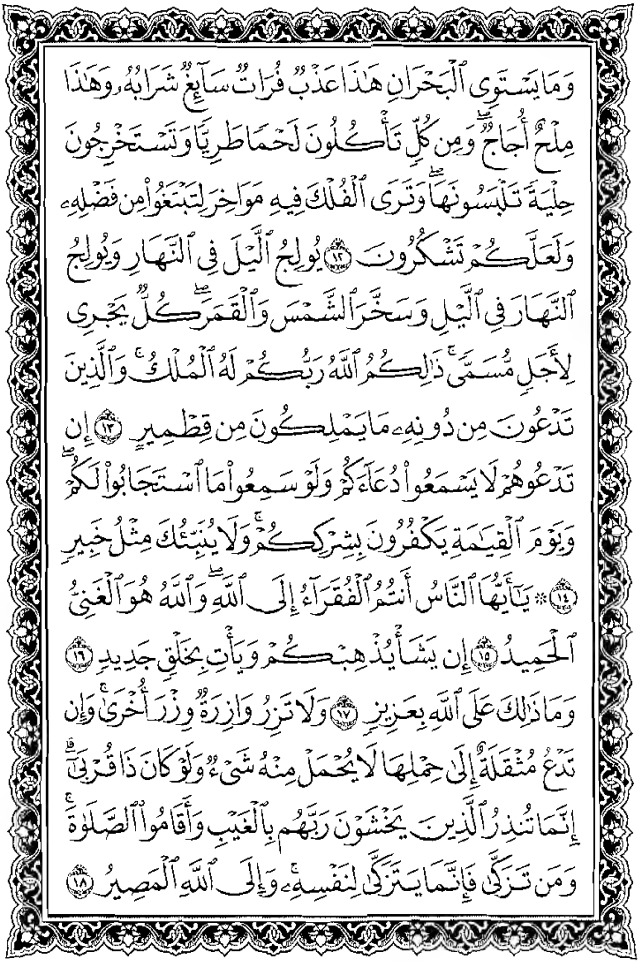 وَمَا يَسْتَوِى ٱلْبَحْرَانِ هَٰذَا عَذْبٌ فُرَاتٌ سَآئِغٌ شَرَابُهُۥ وَهَٰذَا
مِلْحٌ أُجَاجٌ ۖ وَمِن كُلٍّ تَأْكُلُونَ لَحْمًا طَرِيًّا وَتَسْتَخْرِجُونَ
حِلْيَةً تَلْبَسُونَهَا ۖ وَتَرَى ٱلْفُلْكَ فِيهِ مَوَاخِرَ لِتَبْتَغُوا۟ مِن فَضْلِهِۦ
وَلَعَلَّكُمْ تَشْكُرُونَ ١٢ يُولِجُ ٱلَّيْلَ فِى ٱلنَّهَارِ وَيُولِجُ
ٱلنَّهَارَ فِى ٱلَّيْلِ وَسَخَّرَ ٱلشَّمْسَ وَٱلْقَمَرَ ۖ كُلٌّ يَجْرِى
لِأَجَلٍ مُّسَمًّى ۚ ذَٰلِكُمُ ٱللَّهُ رَبُّكُمْ لَهُ ٱلْمُلْكُ ۚ وَٱلَّذِينَ
تَدْعُونَ مِن دُونِهِۦ مَا يَمْلِكُونَ مِن قِطْمِيرٍ ١٣ إِن
تَدْعُوهُمْ لَا يَسْمَعُوا۟ دُعَآءَكُمْ وَلَوْ سَمِعُوا۟ مَا ٱسْتَجَابُوا۟ لَكُمْ ۖ
وَيَوْمَ ٱلْقِيَٰمَةِ يَكْفُرُونَ بِشِرْكِكُمْ ۚ وَلَا يُنَبِّئُكَ مِثْلُ خَبِيرٍ
١٤ ۞ يَٰٓأَيُّهَا ٱلنَّاسُ أَنتُمُ ٱلْفُقَرَآءُ إِلَى ٱللَّهِ ۖ وَٱللَّهُ هُوَ ٱلْغَنِىُّ
ٱلْحَمِيدُ ١٥ إِن يَشَأْ يُذْهِبْكُمْ وَيَأْتِ بِخَلْقٍ جَدِيدٍ ١٦
وَمَا ذَٰلِكَ عَلَى ٱللَّهِ بِعَزِيزٍ ١٧ وَلَا تَزِرُ وَازِرَةٌ وِزْرَ أُخْرَىٰ ۚ وَإِن
تَدْعُ مُثْقَلَةٌ إِلَىٰ حِمْلِهَا لَا يُحْمَلْ مِنْهُ شَىْءٌ وَلَوْ كَانَ ذَا قُرْبَىٰٓ ۗ
إِنَّمَا تُنذِرُ ٱلَّذِينَ يَخْشَوْنَ رَبَّهُم بِٱلْغَيْبِ وَأَقَامُوا۟ ٱلصَّلَوٰةَ ۚ
وَمَن تَزَكَّىٰ فَإِنَّمَا يَتَزَكَّىٰ لِنَفْسِهِۦ ۚ وَإِلَى ٱللَّهِ ٱلْمَصِيرُ ١٨